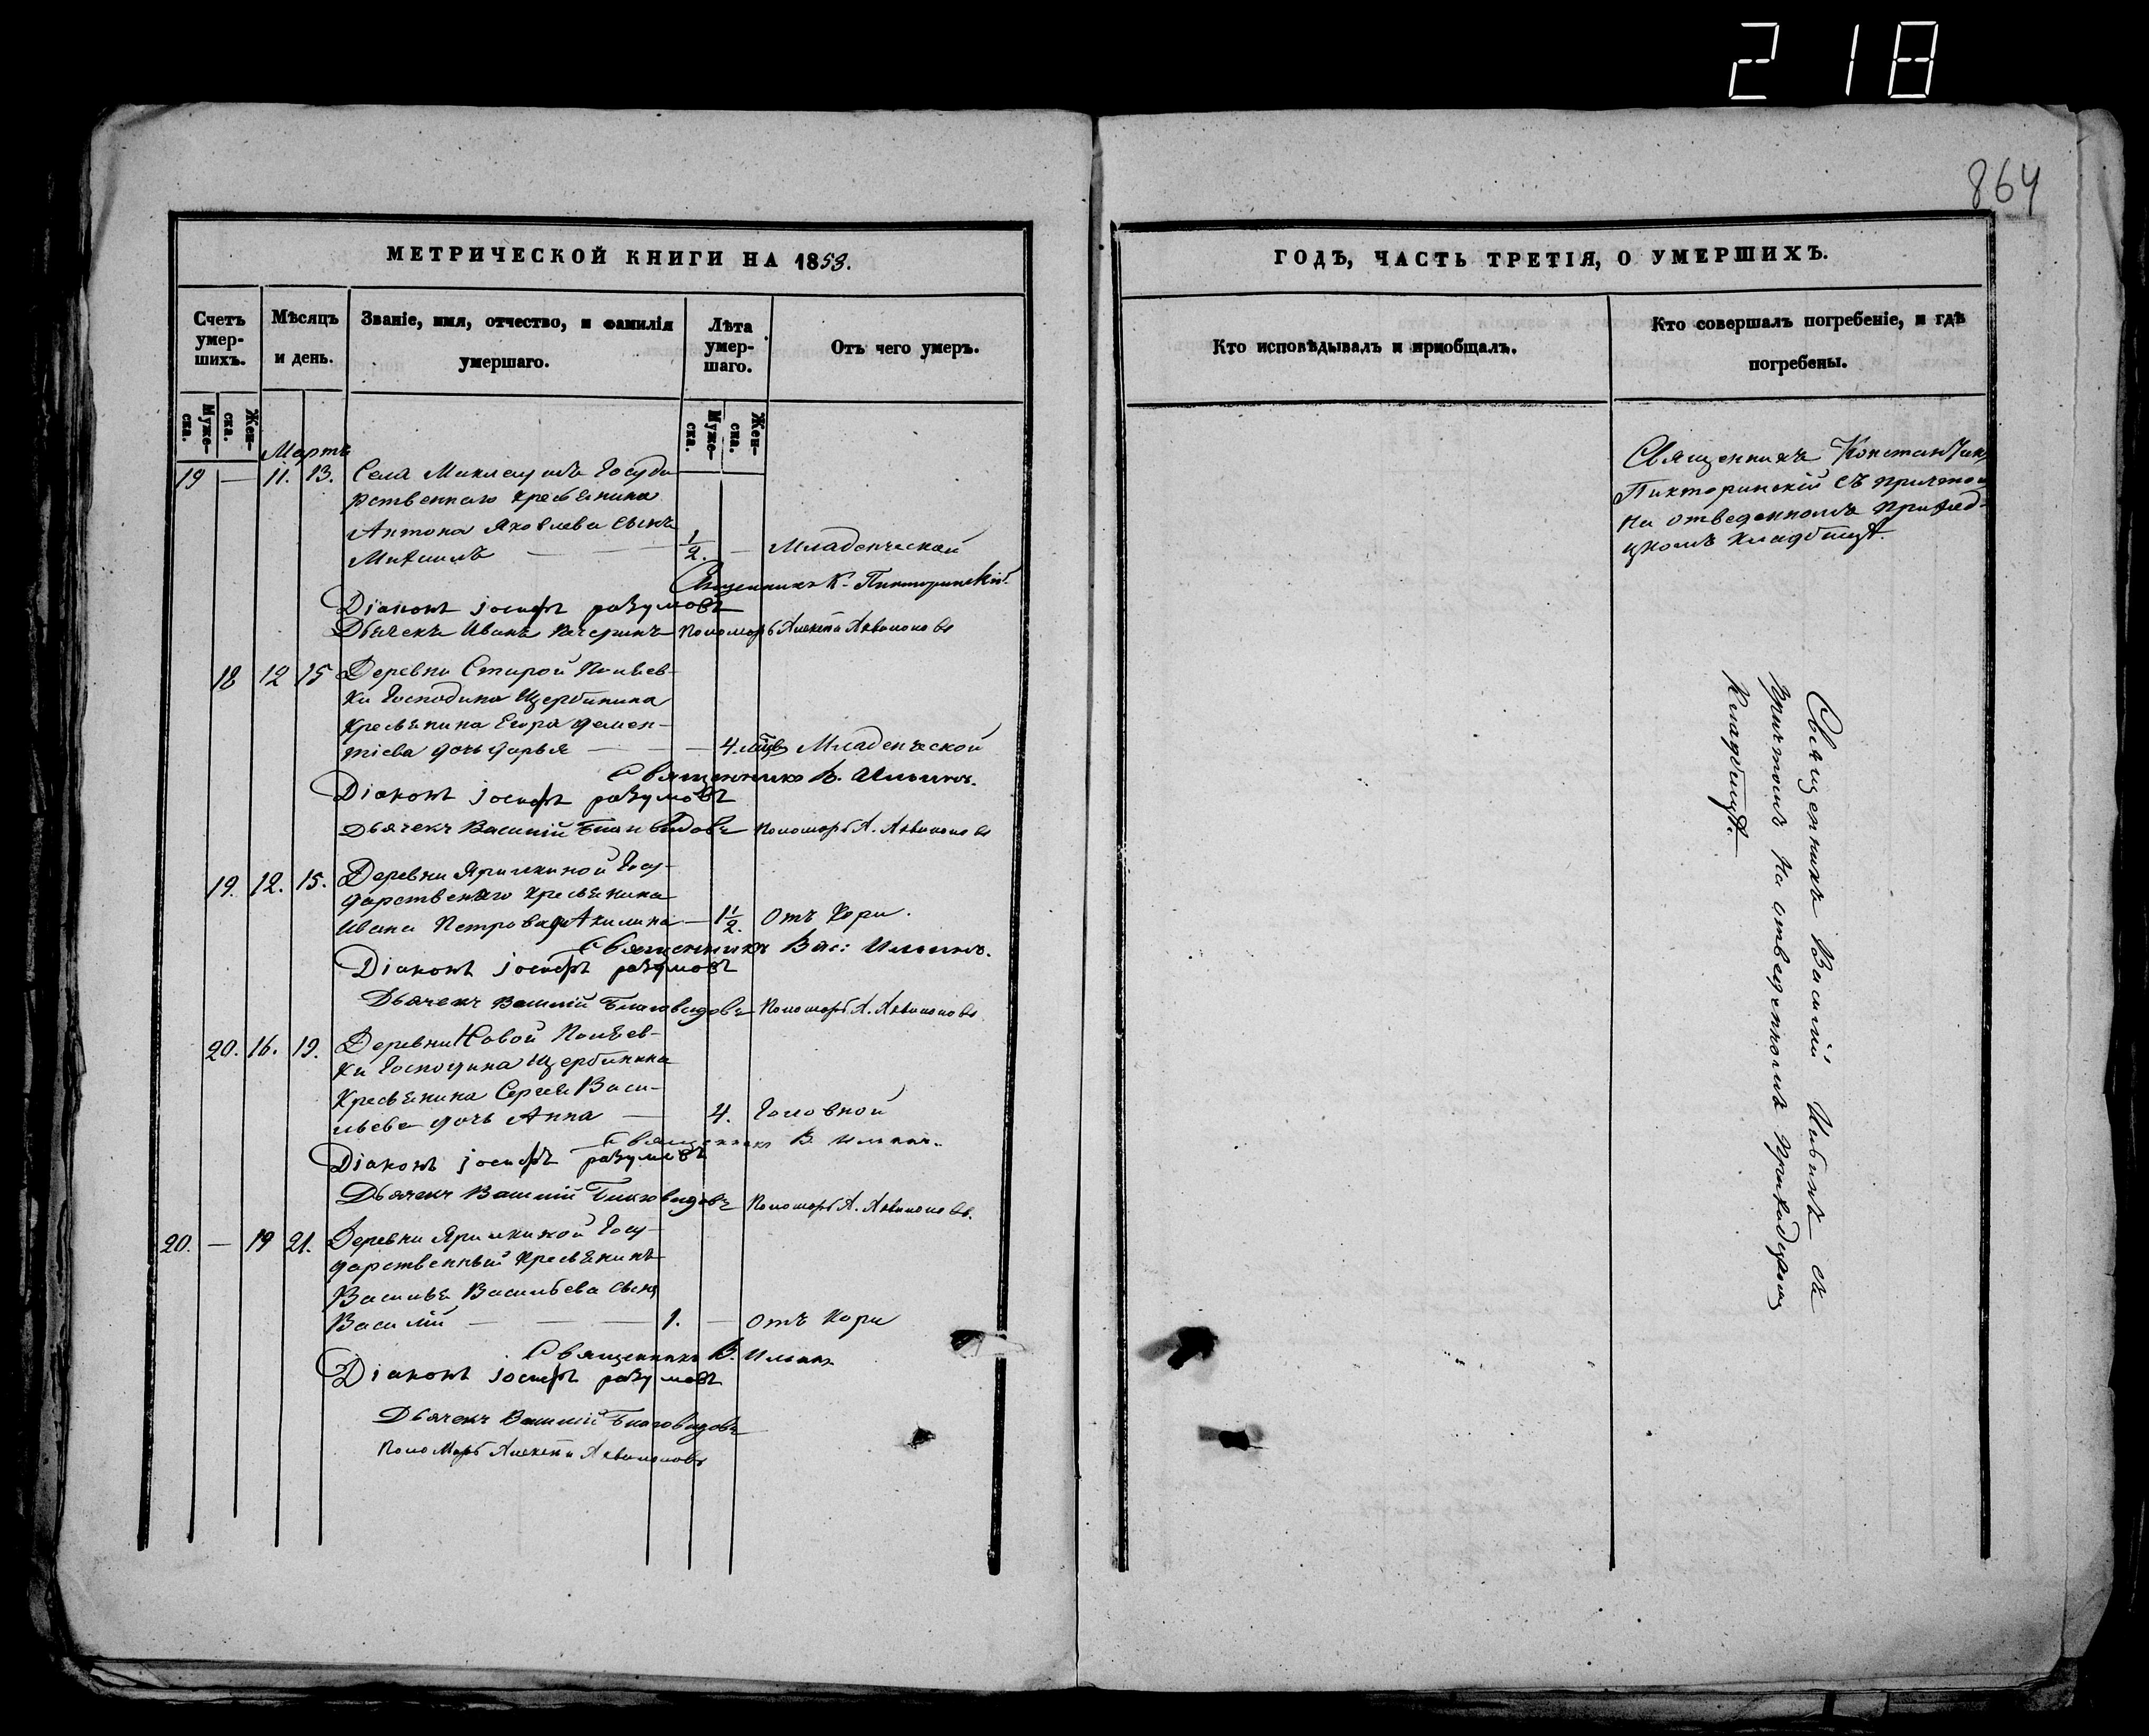 218
864
МЕТРИЧЕСКОЙ КНИГИ НА 1853.
Счетъ умер-
шихъ.
Мѣсяцъ
и день.
Званіе, имя, отчество, и фамилія
умершаго.
Лѣта
умер-
шаго.
Отъ чего умеръ.
Муже-
ска.
Жен-
ска.
Муже-
ска.
Жен-
ска.
Мартъ
19 — 11. 13. Села Госуда
рственнаго крестьянина
Антона Яковлева сынъ
Михаилъ — — — 1/2. — Младенческой
Священникъ К. Пикторинскій
Діаконъ іосифъ разумовъ
Дьячекъ Иванъ Пономарь Алексѣй
18 12 15 Деревни Старой
ки Господина Щербинина
крестьянина Егора Демен-
тіева дочь дарья — — — 4. мѣцъ Младенческой
Священникъ В. Ильинъ.
Діаконъ іосифъ разумовъ
Дьячекъ Василій Благовидовъ Пономарь А.
19. 12. 15. Деревни Госу-
дарственнаго крестьянина
Ивана Петрова Акилина — 1 1/2. Отъ Кори.
Священникъ Вас: Ильинъ.
Діаконъ іосифъ разумовъ
Дьячекъ Василій Благовидовъ Пономарь А.
20. 16. 19. Деревни Новой
ки Господина Щербинина
Крестьянина Сергея Васи-
льева дочь Анна — 4. Головной
Священникъ В. Ильинъ.
Діаконъ іосифъ разумовъ
Дьячекъ Василій Благовидовъ Пономарь А.
20. — 19 21. Деревни Госу-
дарственный Крестьянинъ
Василья Васильева сынъ
Василій — — — 1. — Отъ Кори
Священникъ В. Ильинъ
Діаконъ іосифъ разумовъ
Дьячекъ Василій Благовидовъ
Пономарь Алексѣй
ГОДЪ, ЧАСТЬ ТРЕТІЯ, О УМЕРШИХЪ.
Кто исповѣдывалъ и пріобщалъ.
Кто совершалъ погребеніе, и гдѣ
погребены.
Священникъ Константинъ
Пикторинскій съ причтомъ
на отведенномъ приход-
скомъ кладбищѣ.
Священникъ Василій Ильинъ съ
причтомъ на отведенномъ приходскомъ
Кладбищѣ.